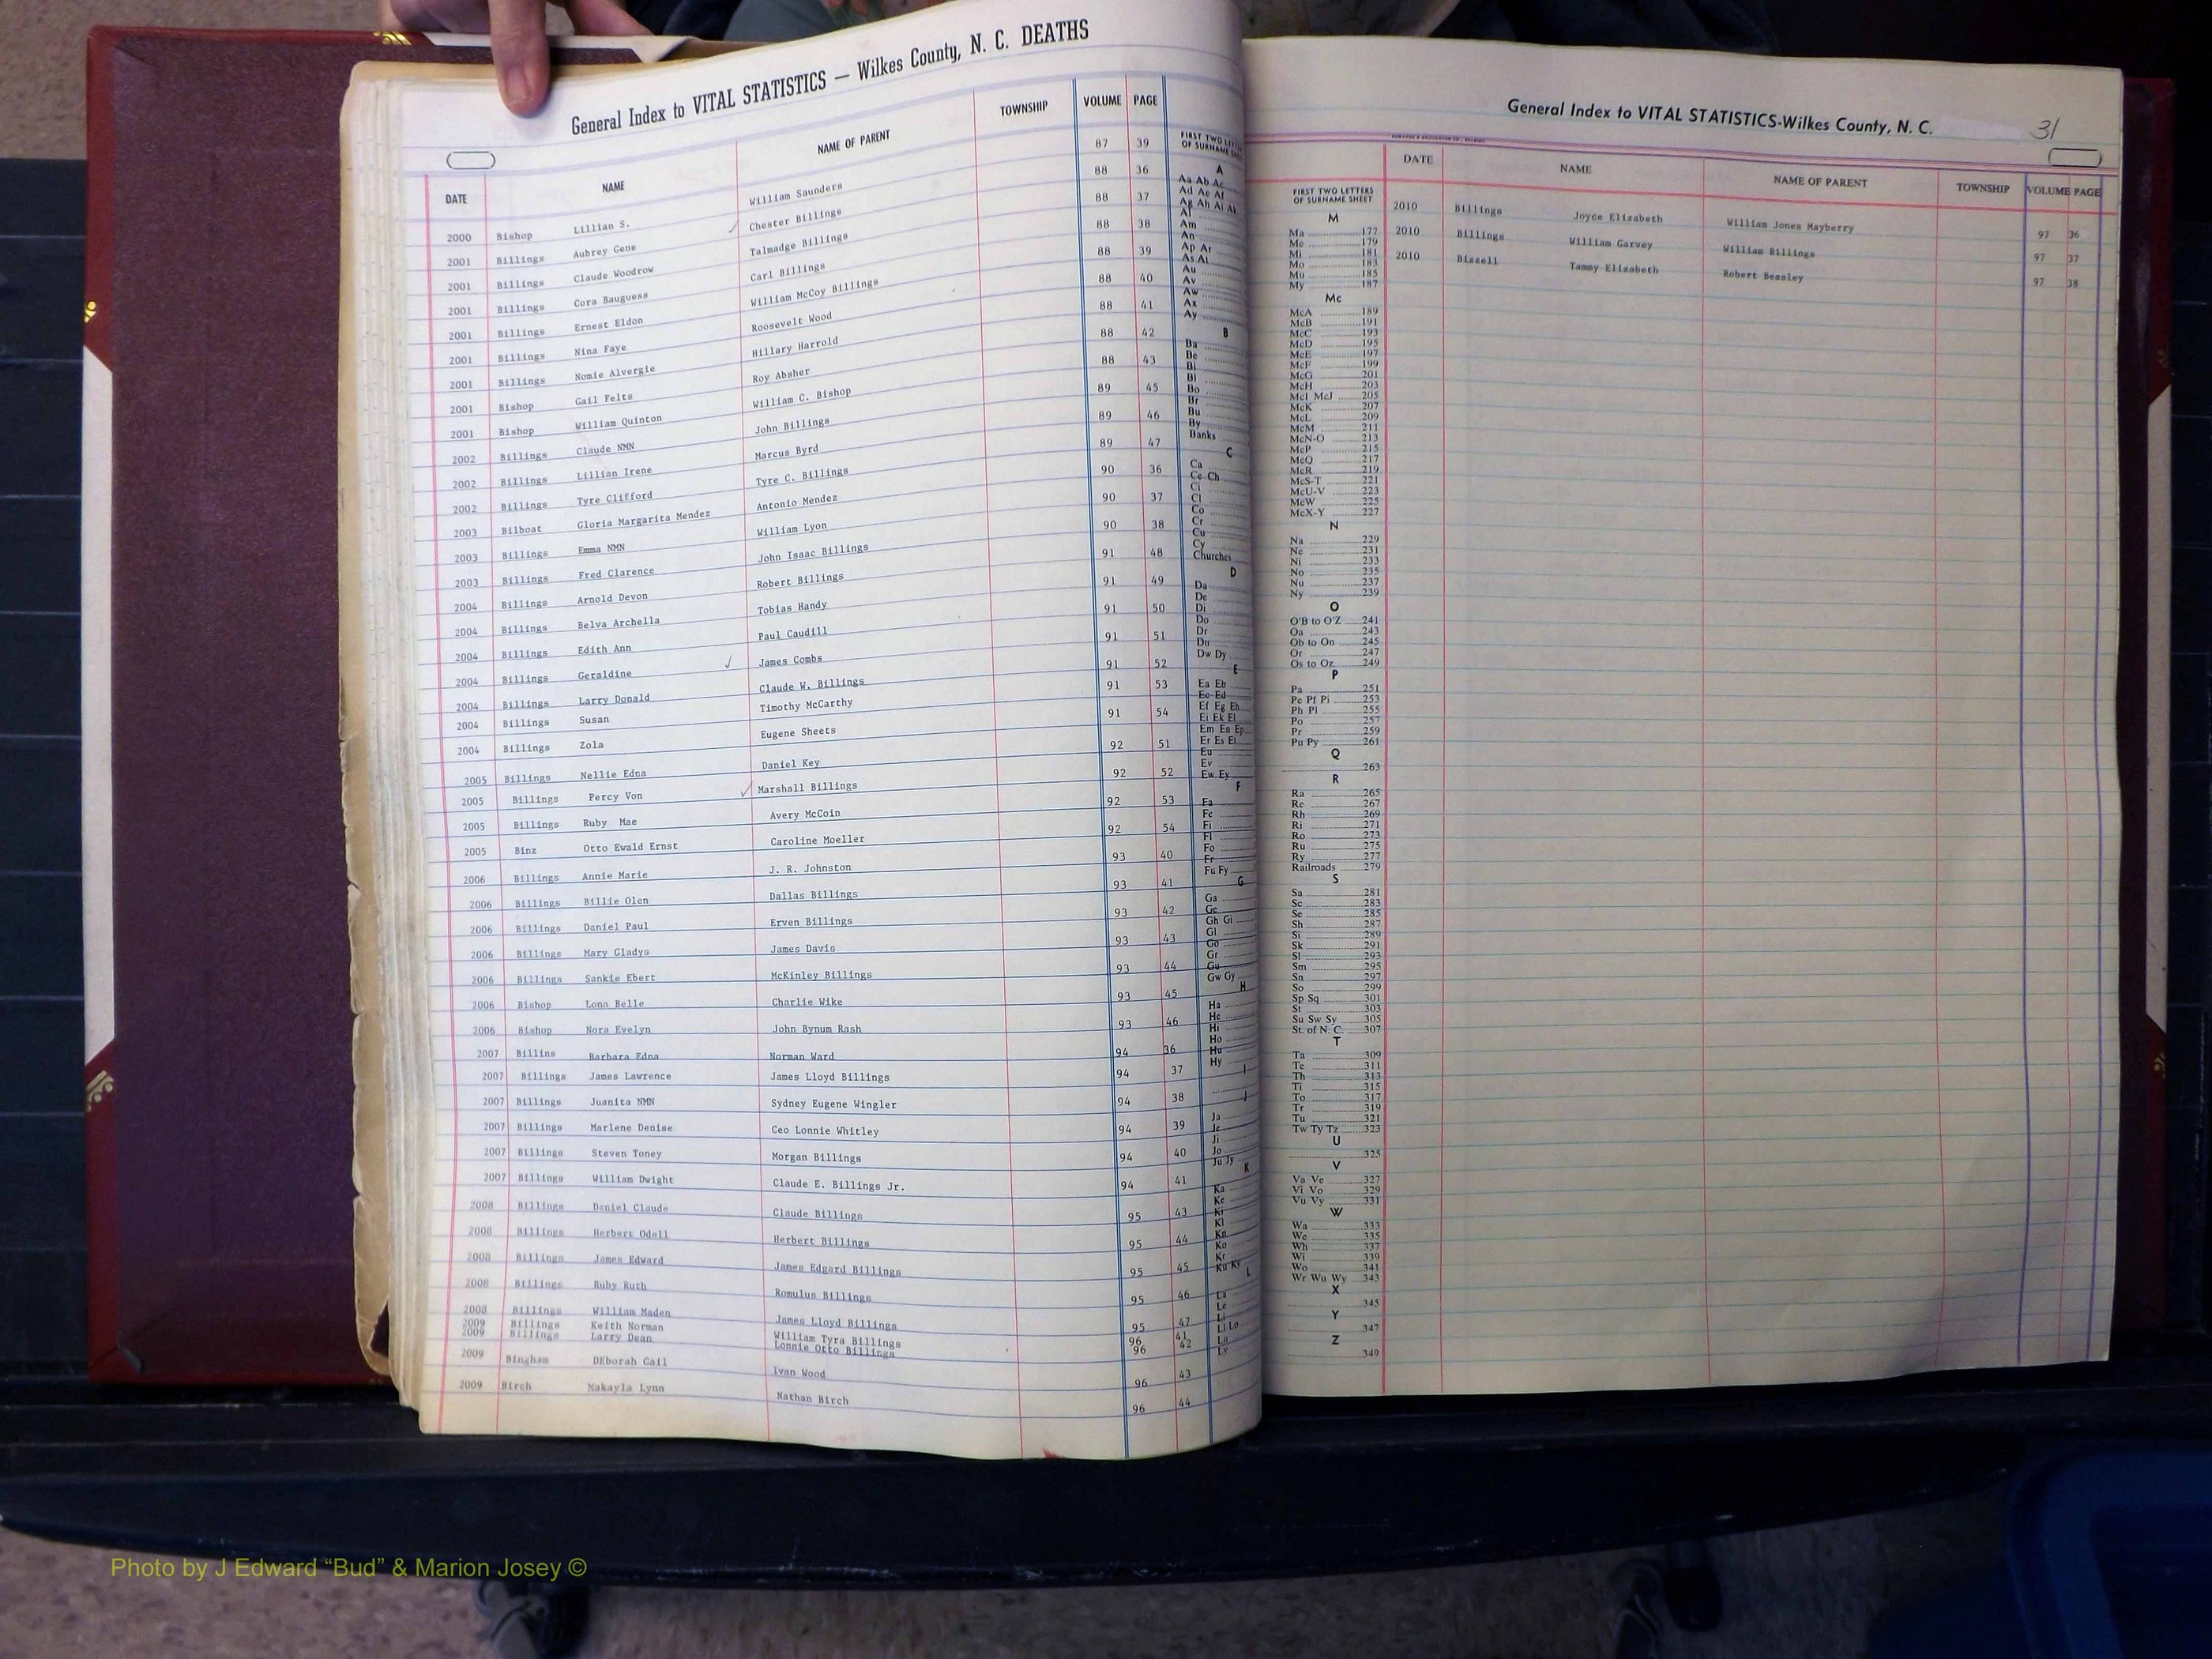 General Index to VITAL STATISTICS — Wilkes County, N. C. DEATHS
DATE NAME NAME OF PARENT TOWNSHIP VOLUME PAGE
2000 Bishop Lillian S. William Saunders 87 39
2001 Billings Aubrey Gene ✓ Chester Billings 88 36
2001 Billings Claude Woodrow Talmadge Billings 88 37
2001 Billings Cora Bauguess Carl Billings 88 38
2001 Billings Ernest Eldon William McCoy Billings 88 39
2001 Billings Nina Faye Roosevelt Wood 88 40
2001 Billings Nomie Alvergie Hillary Harrold 88 41
2001 Bishop Gail Felts Roy Absher 88 42
2001 Bishop William Quinton William C. Bishop 88 43
2002 Billings Claude NMN John Billings 89 45
2002 Billings Lillian Irene Marcus Byrd 89 46
2002 Billings Tyre Clifford Tyre C. Billings 89 47
2003 Bilboat Gloria Margarita Mendez Antonio Mendez 90 36
2003 Billings Emma NMN William Lyon 90 37
2003 Billings Fred Clarence John Isaac Billings 90 38
2004 Billings Arnold Devon Robert Billings 91 48
2004 Billings Belva Archella Tobias Handy 91 49
2004 Billings Edith Ann Paul Caudill 91 50
2004 Billings Geraldine ✓ James Combs 91 51
2004 Billings Larry Donald Claude W. Billings 91 52
2004 Billings Susan Timothy McCarthy 91 53
2004 Billings Zola Eugene Sheets 91 54
2005 Billings Nellie Edna Daniel Key 92 51
2005 Billings Percy Von ✓ Marshall Billings 92 52
2005 Billings Ruby Mae Avery McCoin 92 53
2005 Binz Otto Ewald Ernst Caroline Moeller 92 54
2006 Billings Annie Marie J. R. Johnston 93 40
2006 Billings Billie Olen Dallas Billings 93 41
2006 Billings Daniel Paul Erven Billings 93 42
2006 Billings Mary Gladys James Davis 93 43
2006 Billings Sankie Ebert McKinley Billings 93 44
2006 Bishop Lona Belle Charlie Wike 93 45
2006 Bishop Nora Evelyn John Bynum Rash 93 46
2007 Billins Barbara Edna Norman Ward 94 36
2007 Billings James Lawrence James Lloyd Billings 94 37
2007 Billings Juanita NMN Sydney Eugene Wingler 94 38
2007 Billings Marlene Denise Ceo Lonnie Whitley 94 39
2007 Billings Steven Toney Morgan Billings 94 40
2007 Billings William Dwight Claude E. Billings Jr. 94 41
2008 Billings Daniel Claude Claude Billings 95 43
2008 Billings Herbert Odell Herbert Billings 95 44
2008 Billings James Edward James Edgard Billings 95 45
2008 Billings Ruby Ruth Romulus Billings 95 46
2008 Billings William Maden James Lloyd Billings 95 47
2009 Billings Keith Norman William Tyra Billings 96 41
2009 Billings Larry Dean Lonnie Otto Billings 96 42
2009 Bingham DEborah Gail Ivan Wood 96 43
2009 Birch Makayla Lynn Nathan Birch 96 44
FIRST TWO
OF SURNAME
A
Aa Ab Ac
Ad Ae Af
Ag Ah Ai Ak
Al
Am
An
Ap Ar
As At
Au
Av
Aw
Ax
Ay
B
Ba
Be
Bi
Bl
Bo
Br
Bu
By
Banks
C
Ca
Ce Ch
Ci
Cl
Co
Cr
Cu
Cy
Churches
D
Da
De
Di
Do
Dr
Du
Dw Dy
E
Ea Eb
Ec Ed
Ef Eg Eh
Ei Ek El
Em En Ep
Er Es Et
Eu
Ev
Ew Ey
F
Fa
Fe
Fi
Fl
Fo
Fr
Fu Fy
G
Ga
Ge
Gh Gi
Gl
Go
Gr
Gu
Gw Gy
H
Ha
He
Hi
Ho
Hu
Hy
I
J
Ja
Je
Ji
Jo
Ju Jy
K
Ka
Ke
Ki
Kl
Kn
Ko
Kr
Ku Ky
L
La
Le
Li
Ll Lo
Lu
Ly
General Index to VITAL STATISTICS-Wilkes County, N. C. 31
FIRST TWO LETTERS
OF SURNAME SHEET
DATE NAME NAME OF PARENT TOWNSHIP VOLUME PAGE
2010 Billings Joyce Elizabeth William Jones Mayberry 97 36
2010 Billings William Garvey William Billings 97 37
2010 Bizzell Tammy Elizabeth Robert Beasley 97 38
M
Ma 177
Me 179
Mi 181
Mo 183
Mu 185
My 187
Mc
McA 189
McB 191
McC 193
McD 195
McE 197
McF 199
McG 201
McH 203
McI McJ 205
McK 207
McL 209
McM 211
McN-O 213
McP 215
McQ 217
McR 219
McS-T 221
McU-V 223
McW 225
McX-Y 227
N
Na 229
Ne 231
Ni 233
No 235
Nu 237
Ny 239
O
O'B to O'Z 241
Oa 243
Ob to On 245
Or 247
Os to Oz 249
P
Pa 251
Pe Pf Pi 253
Ph Pl 255
Po 257
Pr 259
Pu Py 261
Q
263
R
Ra 265
Re 267
Rh 269
Ri 271
Ro 273
Ru 275
Ry 277
Railroads 279
S
Sa 281
Sc 283
Se 285
Sh 287
Si 289
Sk 291
Sl 293
Sm 295
Sn 297
So 299
Sp Sq 301
St 303
Su Sw Sy 305
St. of N. C. 307
T
Ta 309
Te 311
Th 313
Ti 315
To 317
Tr 319
Tu 321
Tw Ty Tz 323
U
325
V
Va Ve 327
Vi Vo 329
Vu Vy 331
W
Wa 333
We 335
Wh 337
Wi 339
Wo 341
Wr Wu Wy 343
X
345
Y
347
Z
349
Photo by J Edward “Bud” & Marion Josey ©